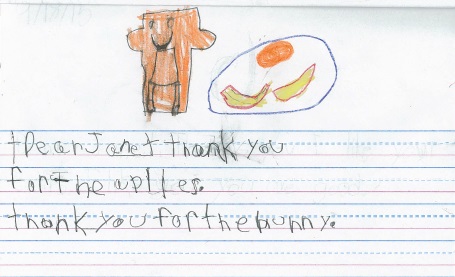 tDear Janet thank you
for the aplles.
thank you for the bunny.